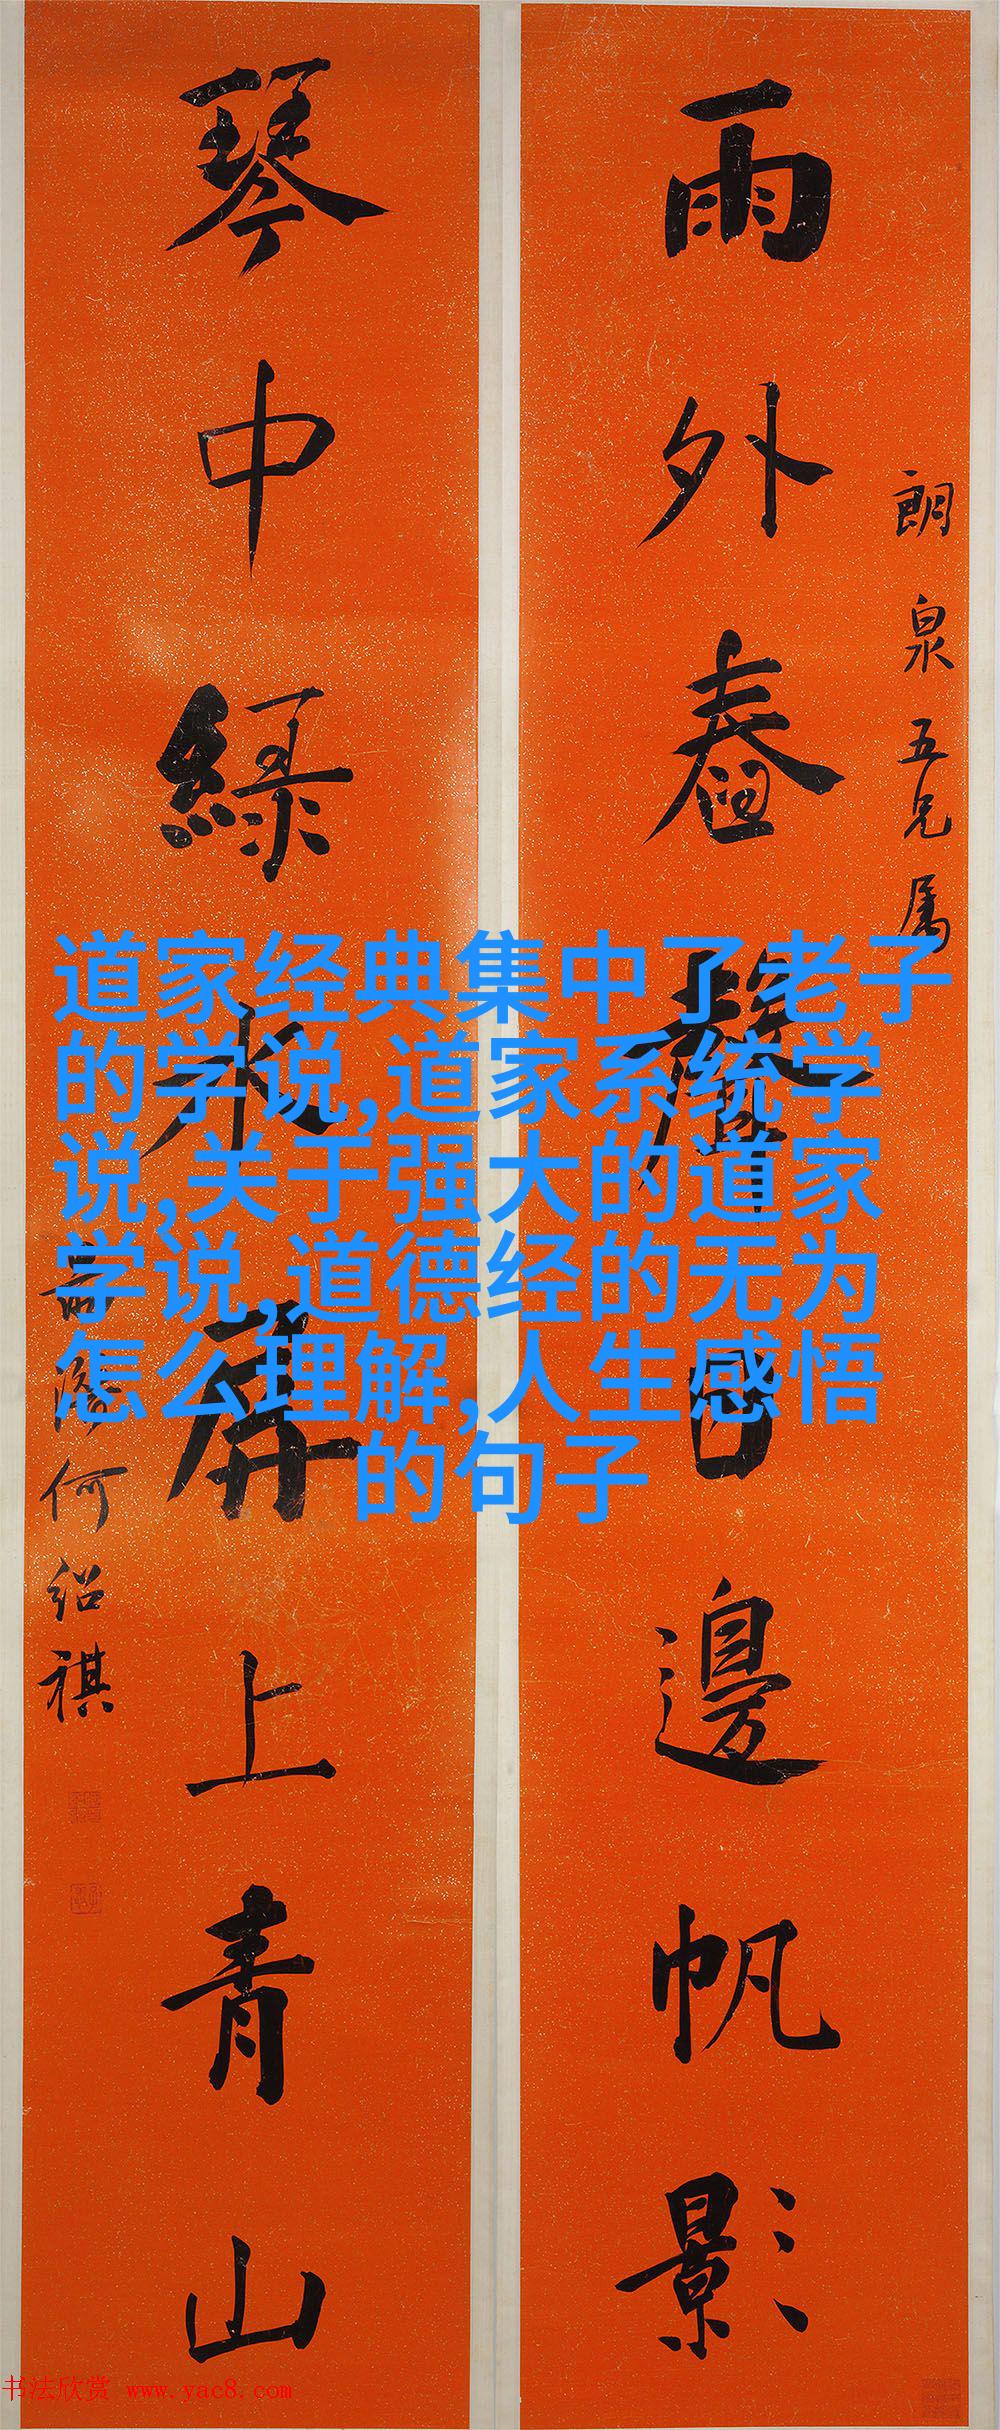 雨外舂聲日邊帆影
朗泉五兄属
琴中綠水屏上青山
何紹祺
道家经典集中了老子
的学说,道家系统学
说,关于强大的道家
学说,道德经的无为
怎么理解,人生感悟
的句子
书法欣赏 www.yac8.com